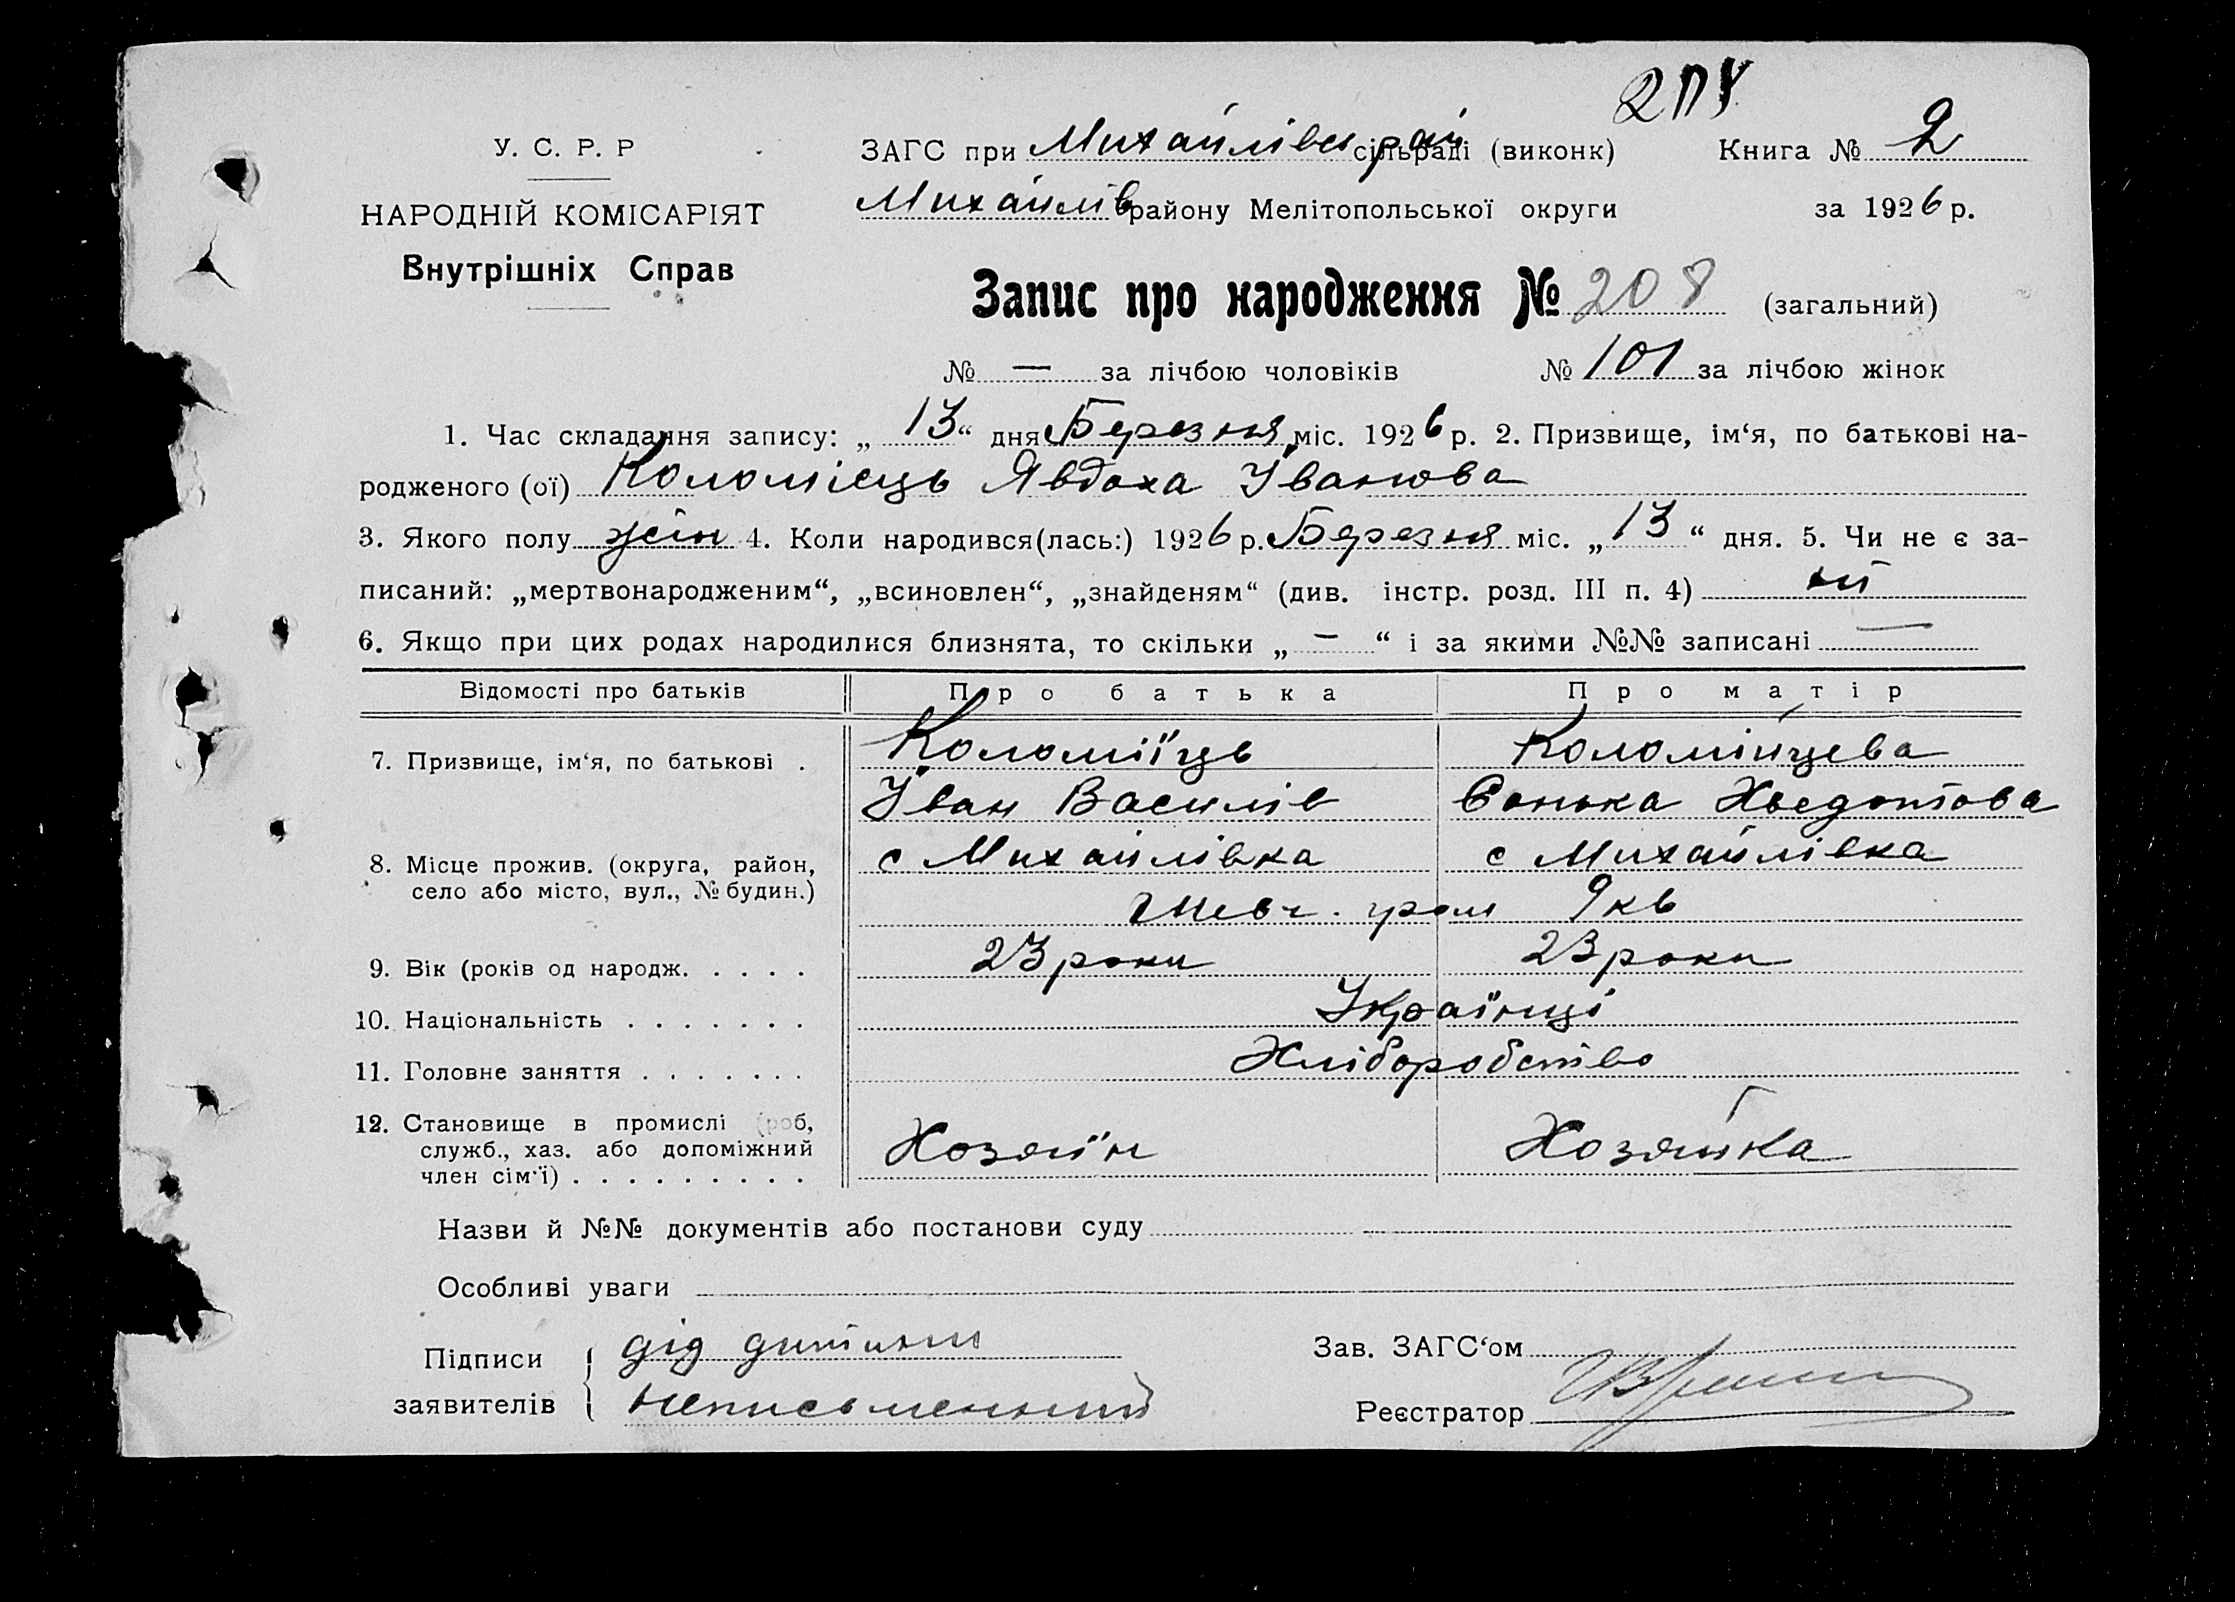 2ПУ
У. С. Р. Р
ЗАГС при Михайлівськ рай сільраді (виконк) Книга № 2
НАРОДНІЙ КОМІСАРІЯТ
Михайлів району Мелітопольської округи за 1926 р.
Внутрішніх Справ
Запис про народження № 208 (загальний)
№ — за лічбою чоловіків № 101 за лічбою жінок
1. Час складання запису: „13“ дня Березня міс. 1926 р. 2. Призвище, ім‘я, по батькові на-
родженого (ої) Коломієць Явдоха Іванова
3. Якого полу жін 4. Коли народився(лась:) 1926 р. Березня міс. „13“ дня. 5. Чи не є за-
писаний: „мертвонародженим“, „всиновлен“, „знайденям“ (див. інстр. розд. III п. 4) ні
6. Якщо при цих родах народилися близнята, то скільки „—“ і за якими №№ записані —
Відомості про батьків Про батька Про матір
7. Призвище, ім‘я, по батькові . Коломіїць Коломійцева
Іван Василів Сонька Хведотова
8. Місце прожив. (округа, район, с Михайлівка с Михайлівка
село або місто, вул., № будин.) Шевч. гром 9 кв
9. Вік (років од народж. . . . . 23 роки 23 роки
10. Національність . . . . . . . Українці
11. Головне заняття . . . . . . . Хліборобство
12. Становище в промислі (роб,
служб., хаз. або допоміжний Хозяїн Хозяйка
член сім‘ї) . . . . . . . . .
Назви й №№ документів або постанови суду
Особливі уваги
Підписи дід дитини Зав. ЗАГС‘ом
заявителів неписьменний Реєстратор